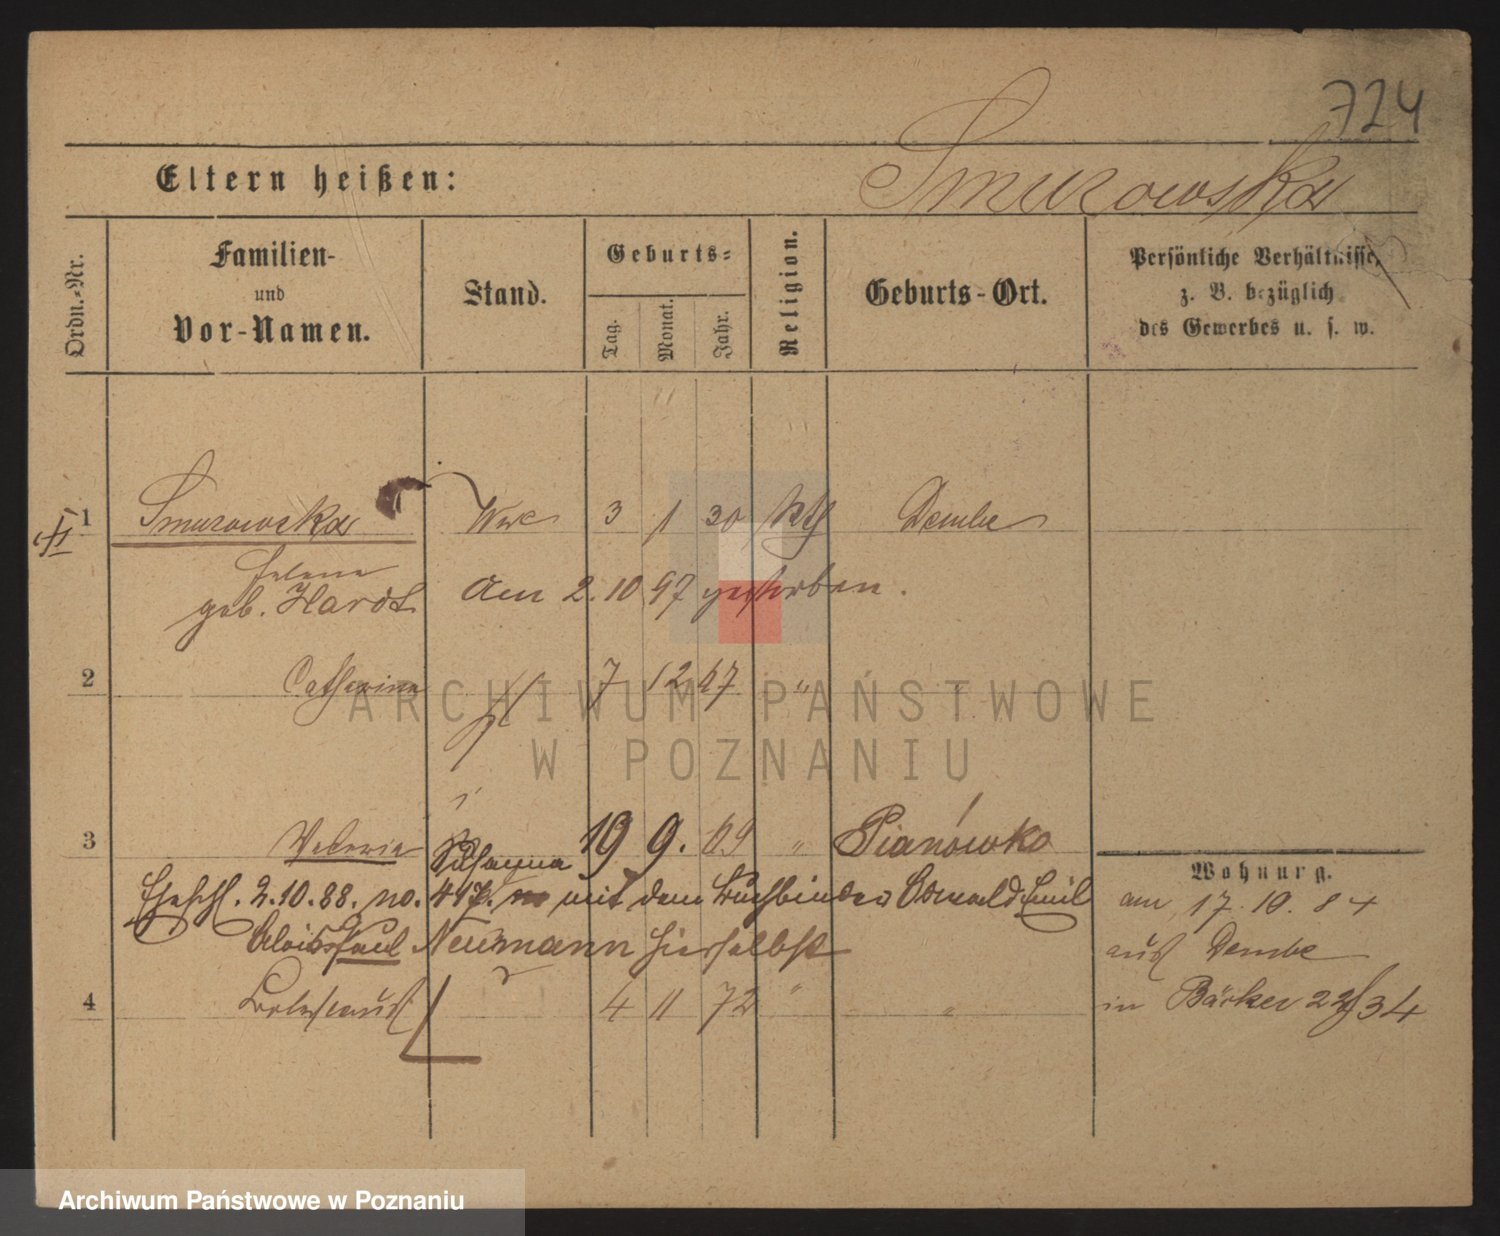 724
Eltern heißen:
Smurowska
Ordn.-Nr.
Familien-
und
Vor-Namen.
Stand.
Geburts-
Tag.
Monat.
Jahr.
Religion.
Geburts-Ort.
Persönliche Verhältnisse,
z. B. bezüglich
des Gewerbes u. s. w.
1 Smurowska Wwe 3 1 30 kth Dembe
Helene
geb. Hardt am 2.10 97 gestorben.
2 Catharina 7 12 67 "
3 Valeria Susanna 19 9. 69 " Pianówko
Wohnung.
Ehesch. 2.10.88. no. 417. mit dem Buchbinder Oswald Emil
Alois Paul Neumann hierselbst
am 17.10.84
aus Dembe
4 Boleslaus 4 11 72 " "
in Bäcker 22/34
ARCHIWUM PAŃSTWOWE
W POZNANIU
Archiwum Państwowe w Poznaniu